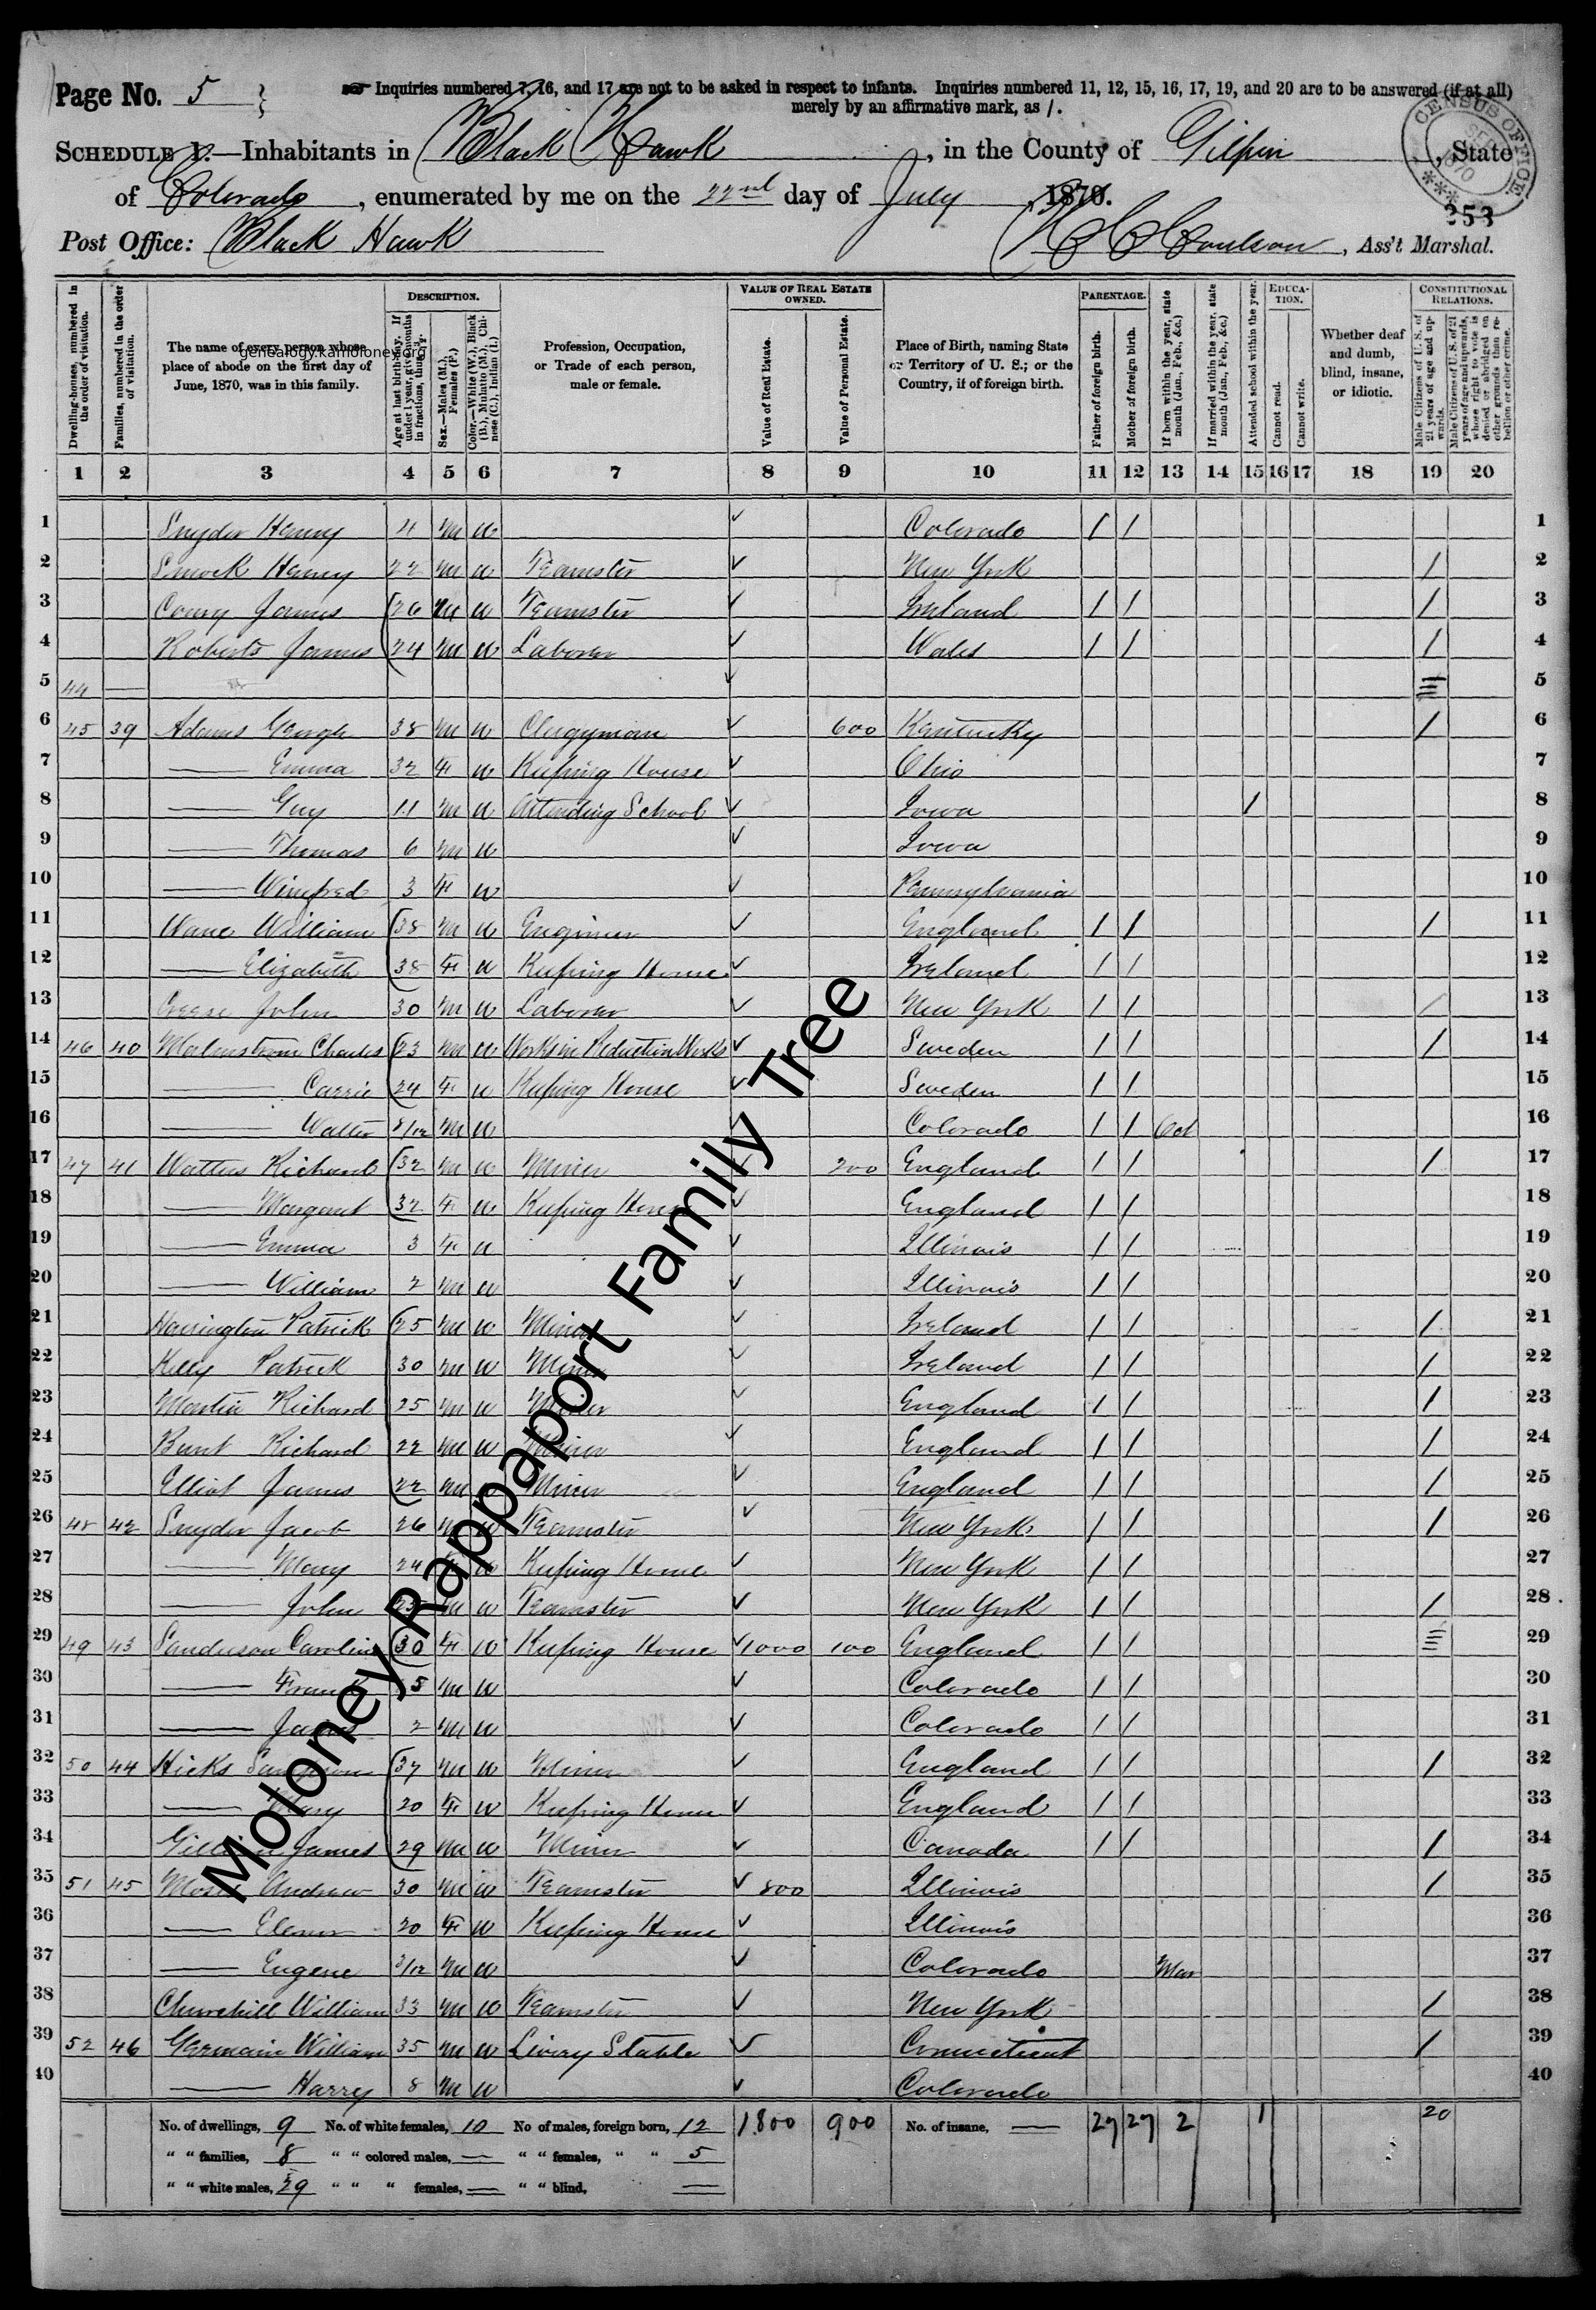 Page No. 5
Inquiries numbered 7, 16, and 17 are not to be asked in respect to infants. Inquiries numbered 11, 12, 15, 16, 17, 19, and 20 are to be answered (if at all)
merely by an affirmative mark, as /.
SCHEDULE 1.—Inhabitants in Black Hawk, in the County of Gilpin, State
of Colorado, enumerated by me on the 22nd day of July, 1870.
CENSUS OFFICE 1870
353
Post Office: Black Hawk
Coulson, Ass't Marshal.
Dwelling-houses, numbered in the order of visitation.
Families, numbered in the order of visitation.
The name of every person whose place of abode on the first day of June, 1870, was in this family.
genealogy.kamoloney.org
DESCRIPTION.
Age at last birth-day. If under 1 year, give months in fractions, thus,
Sex.—Males (M.), Females (F.)
Color.—White (W.), Black (B.), Mulatto (M.), Chinese (C.), Indian (I.)
Profession, Occupation, or Trade of each person, male or female.
VALUE OF REAL ESTATE OWNED.
Value of Real Estate.
Value of Personal Estate.
Place of Birth, naming State or Territory of U. S.; or the Country, if of foreign birth.
PARENTAGE.
Father of foreign birth.
Mother of foreign birth.
If born within the year, state month (Jan., Feb., &c.)
If married within the year, state month (Jan., Feb., &c.)
Attended school within the year.
EDUCATION.
Cannot read.
Cannot write.
Whether deaf and dumb, blind, insane, or idiotic.
CONSTITUTIONAL RELATIONS.
Male Citizens of U. S. of 21 years of age and upwards.
Male Citizens of U. S. of 21 years of age and upwards, whose right to vote is denied or abridged on other grounds than rebellion or other crime.
1 2 3 4 5 6 7 8 9 10 11 12 13 14 15 16 17 18 19 20
1 Snyder Henry 4 M W Colorado / / 1
2 Smock Henry 22 M W Teamster New York / 2
3 James 26 M W Teamster Ireland / / / 3
4 Roberts James 24 M W Laborer Wales / / / 4
5 44 — 5
6 45 39 Adams George 38 M W Clergyman 600 Kentucky / 6
7 — Emma 32 F W Keeping House Ohio 7
8 — Guy 11 M W Attending School Iowa / 8
9 — Thomas 6 M W Iowa 9
10 — Winifred 3 F W Pennsylvania 10
11 William 38 M W Engineer England / / / 11
12 — Elizabeth 38 F W Keeping House Ireland / / 12
13 John 30 M W Laborer New York / / / 13
14 46 40 Malmstrom Charles 23 M W Works in Reduction Works Sweden / / / 14
15 — Carrie 24 F W Keeping House Sweden / / 15
16 — Walter 8/12 M W Colorado / / Oct 16
17 47 41 Watters Richard 32 M W Miner 200 England / / / 17
18 — Margaret 32 F W Keeping House England / / 18
19 — Emma 3 F W Illinois / / 19
20 — William 2 M W Illinois / / 20
21 Harrington Patrick 25 M W Miner Ireland / / / 21
22 Kelly Patrick 30 M W Miner Ireland / / / 22
23 Martin Richard 25 M W Miner England / / / 23
24 Bunt Richard 22 M W Miner England / / / 24
25 Elliot James 22 M W Miner England / / / 25
26 48 42 Snyder Jacob 26 M W Teamster New York / / / 26
27 — Mary 24 F W Keeping House New York / / 27
28 — John 25 M W Teamster New York / / / 28
29 49 43 Sanderson Caroline 30 F W Keeping House 1000 100 England / / 29
30 — Frank 5 M W Colorado / / 30
31 — James 2 M W Colorado / / 31
32 50 44 Hicks Sampson 37 M W Miner England / / / 32
33 — Mary 20 F W Keeping House England / / 33
34 James 29 M W Miner Canada / / / 34
35 51 45 Andrew 30 M W Teamster 800 Illinois / 35
36 — Elenor 20 F W Keeping House Illinois 36
37 — Eugene 3/12 M W Colorado Mar 37
38 Churchill William 33 M W Teamster New York / 38
39 52 46 Germain William 35 M W Livery Stable Connecticut / 39
40 — Harry 8 M W Colorado 40
No. of dwellings, 9 No. of white females, 10 No of males, foreign born, 12 1800 900 No. of insane, — 27 27 2 1 20
" " families, 8 " " colored males, — " " females, " " 5
" " white males, 29 " " " females, — " " blind, —
Moloney Rappaport Family Tree